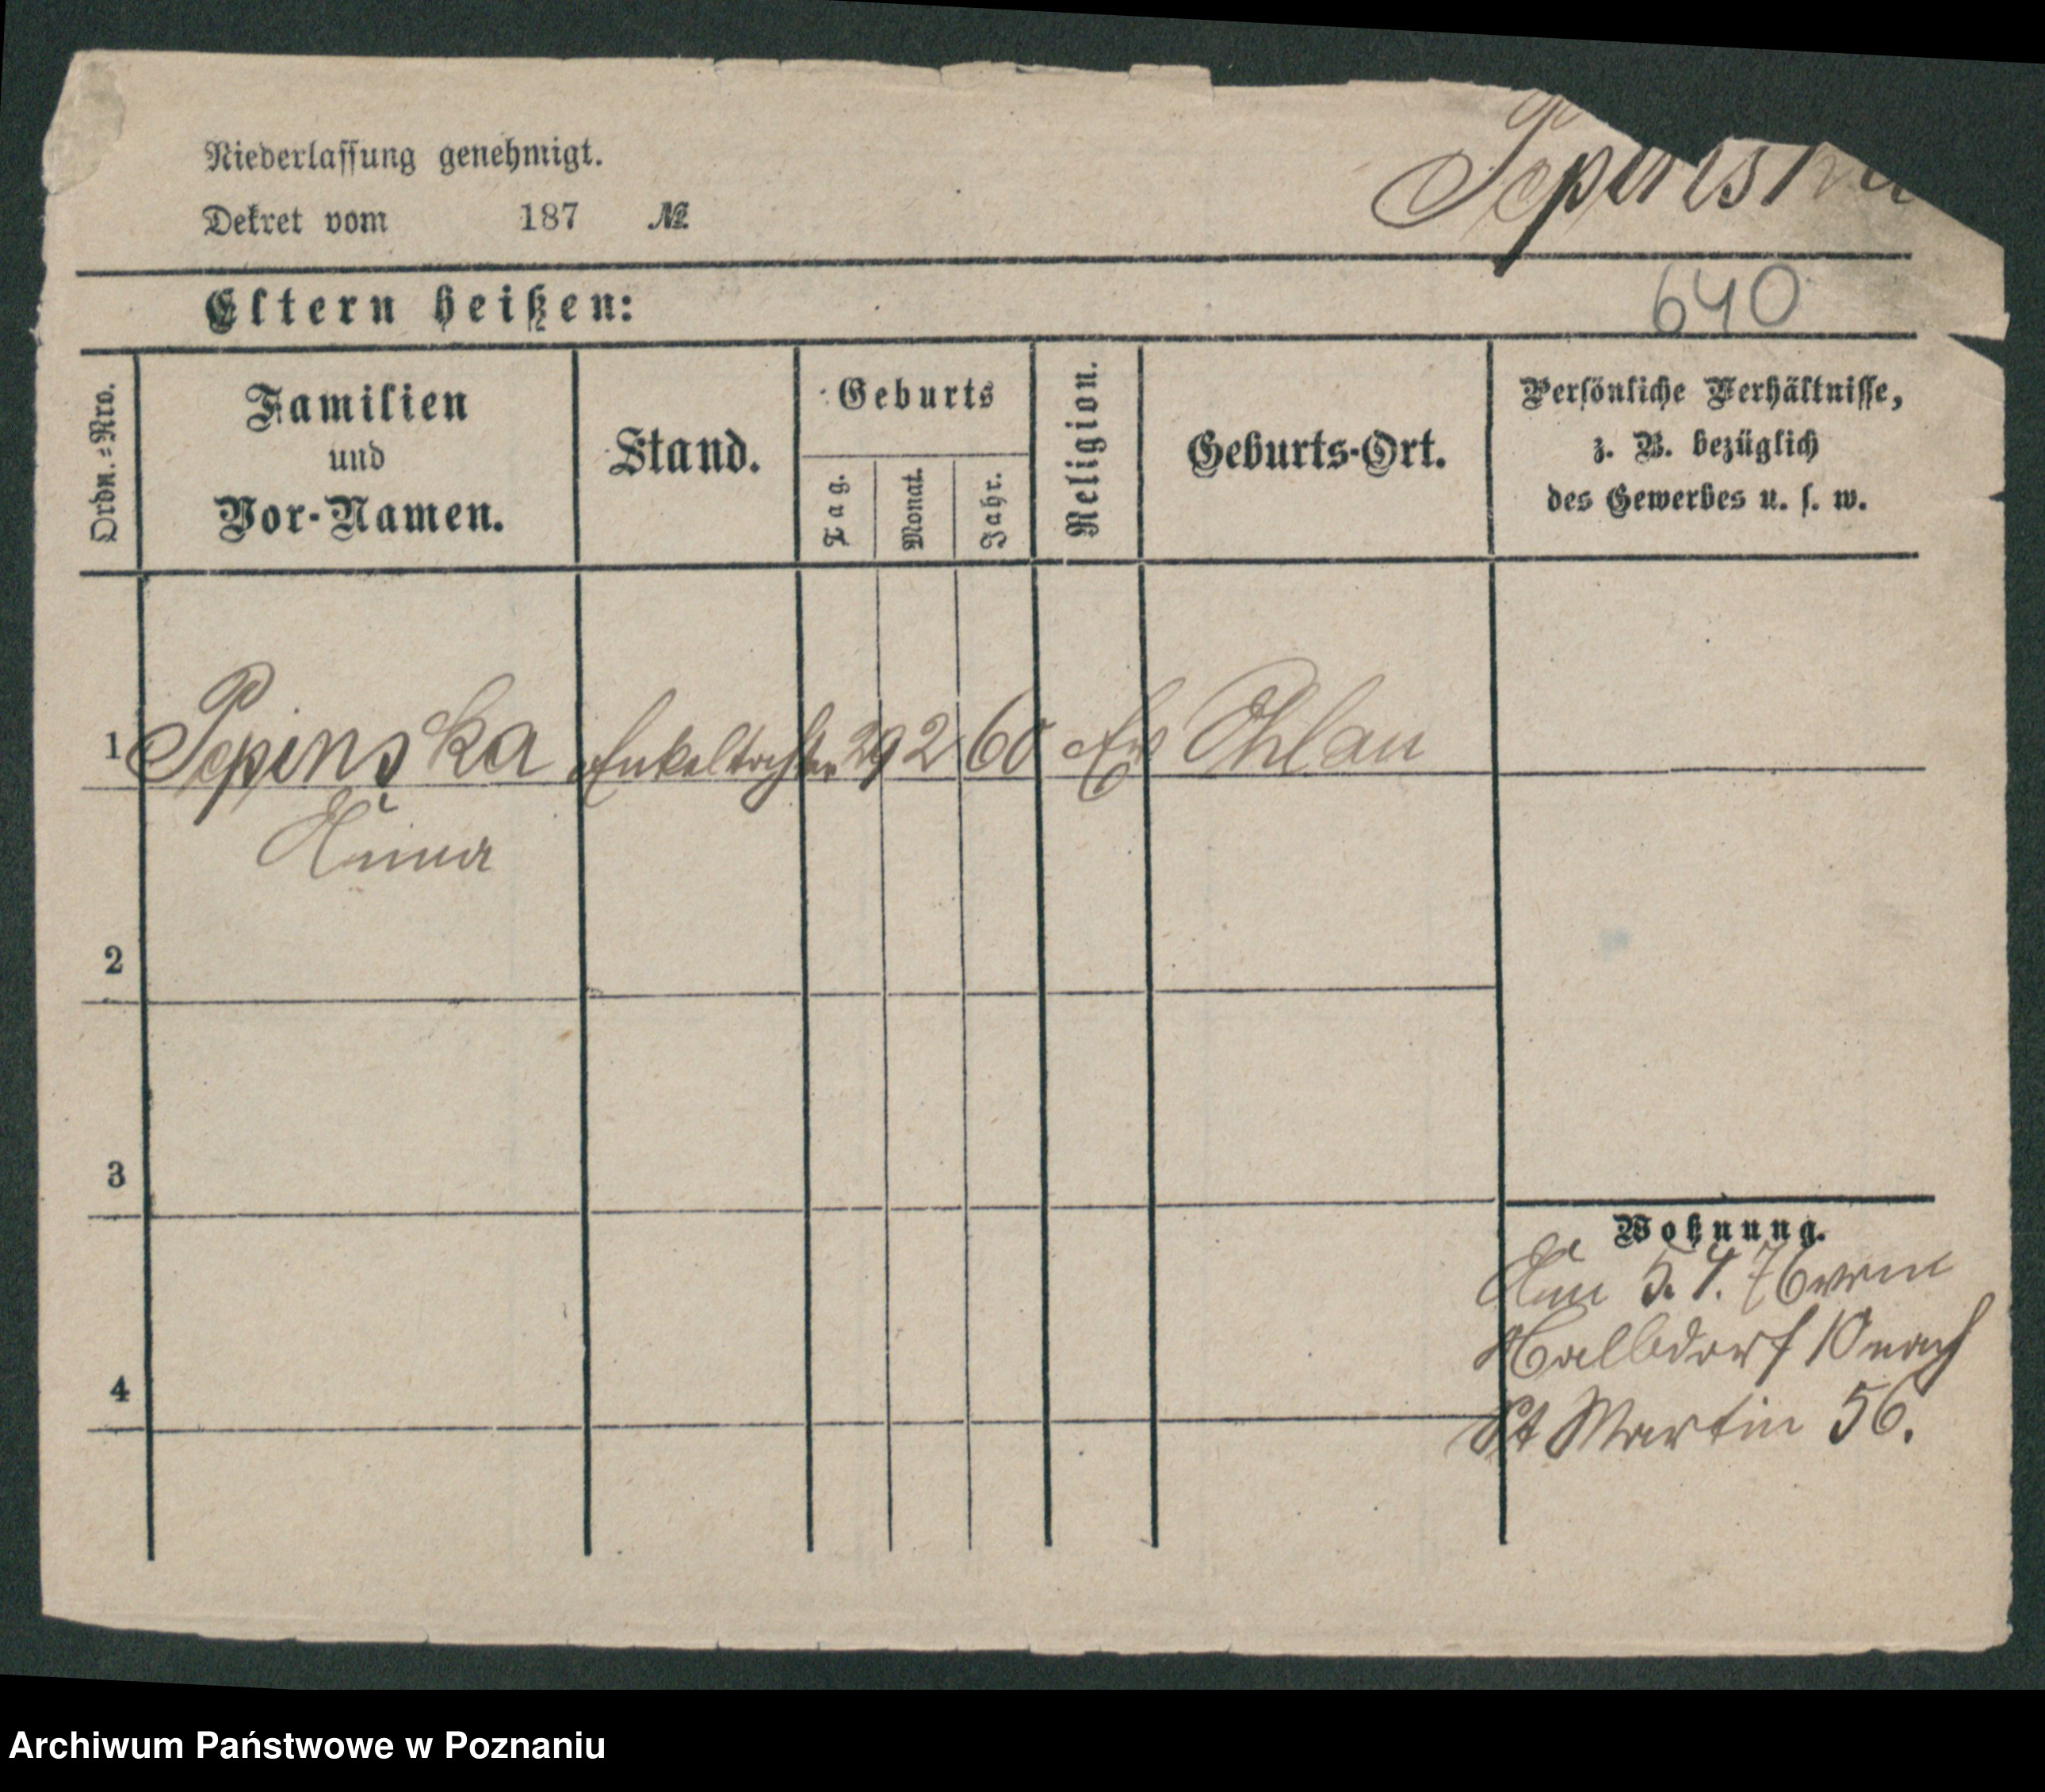 Niederlassung genehmigt.
Dekret vom 187 №
Pepinska
Eltern heißen:
640
Ordn.=Nro.
Familien
und
Vor-Namen.
Stand.
Geburts
Tag.
Monat.
Jahr.
Religion.
Geburts-Ort.
Persönliche Verhältnisse,
z. B. bezüglich
des Gewerbes u. s. w.
1 Pepinska Enkeltochter 29 2 60 Ev Ohlau
2
3
Wohnung.
5. 4. 76 von
Halbdorf 10 nach
4
St Martin 56.
Archiwum Państwowe w Poznaniu